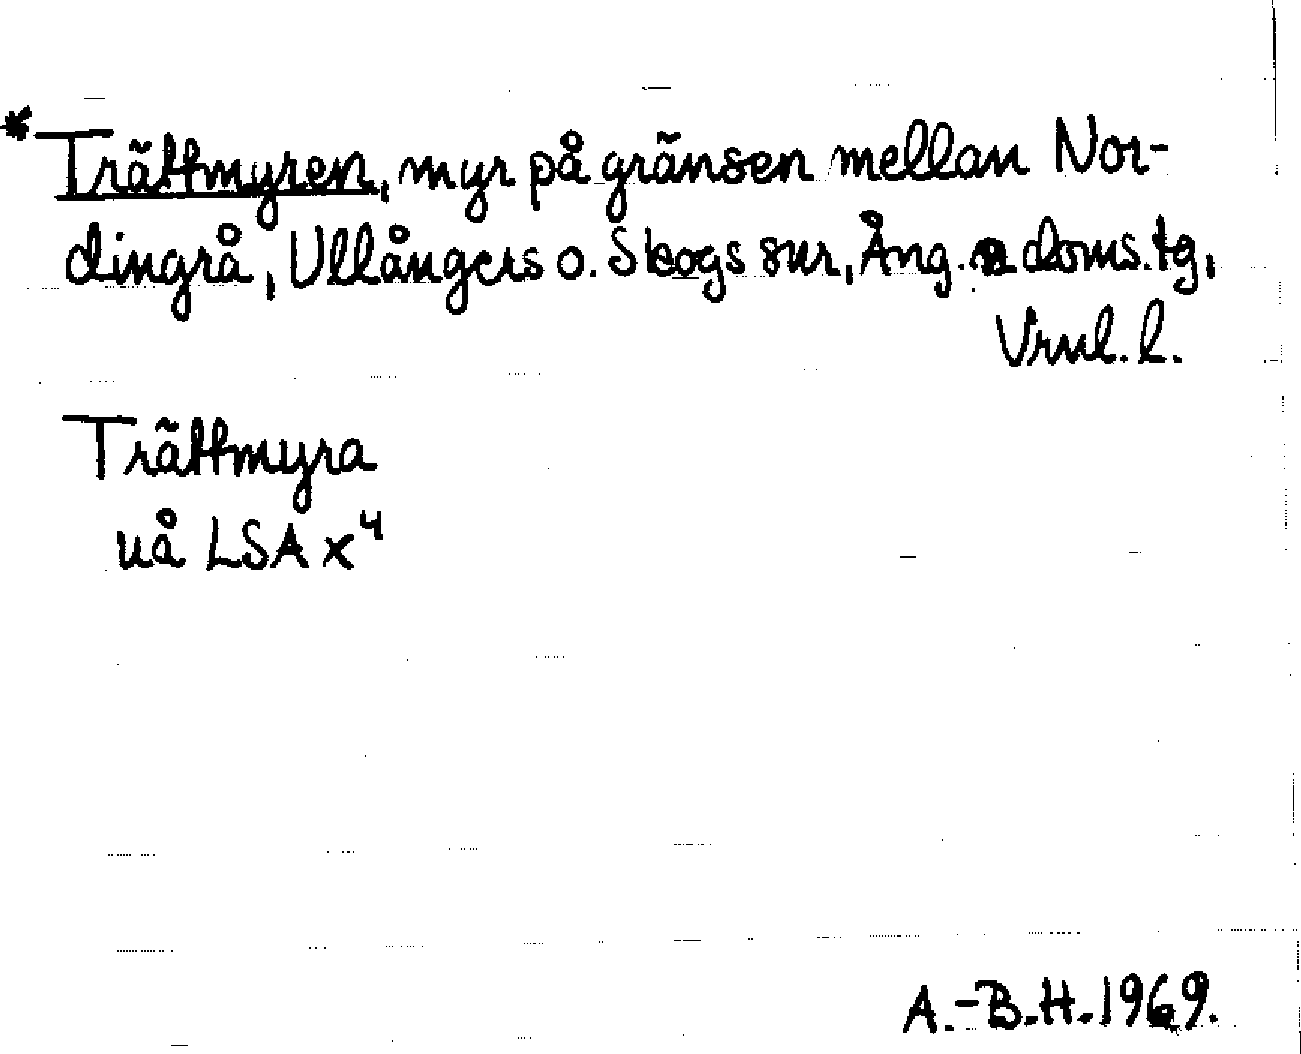 * Trättmyren, myr på gränsen mellan Nor-
dingrå, Ullångers o. Skogs snr, Ång. n doms.tg,
Vrnl. l.
Trättmyra
uå LSA x⁴
A.-B.H. 1969.